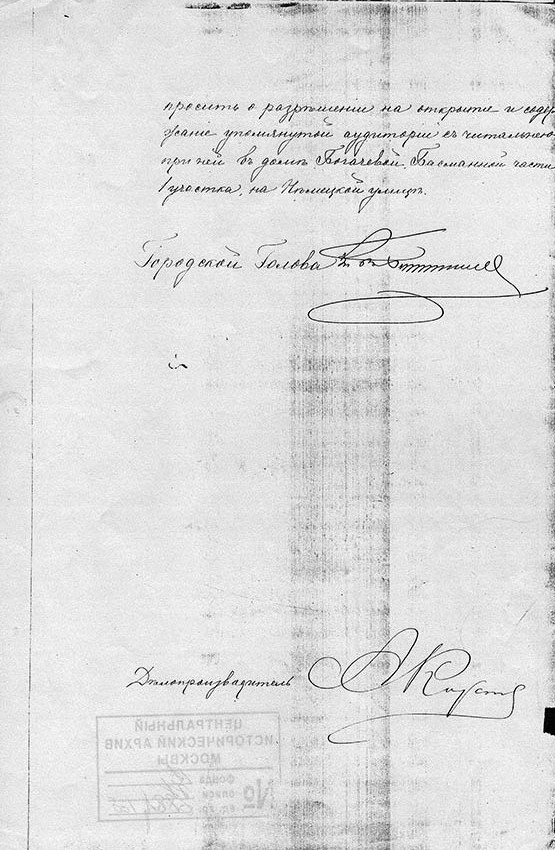 просить о разрѣшеніи на открытіе и соде
жаніе упомянутой аудиторіи съ читальнею
при ней въ домѣ Богачевой, Басманной части
1 участка, на Нѣмецкой улицѣ.
Городской Голова
Дѣлопроизводитель
ЦЕНТРАЛЬНЫЙ
ИСТОРИЧЕСКИЙ АРХИВ
МОСКВЫ
№ фонда
описи
ед. хр.